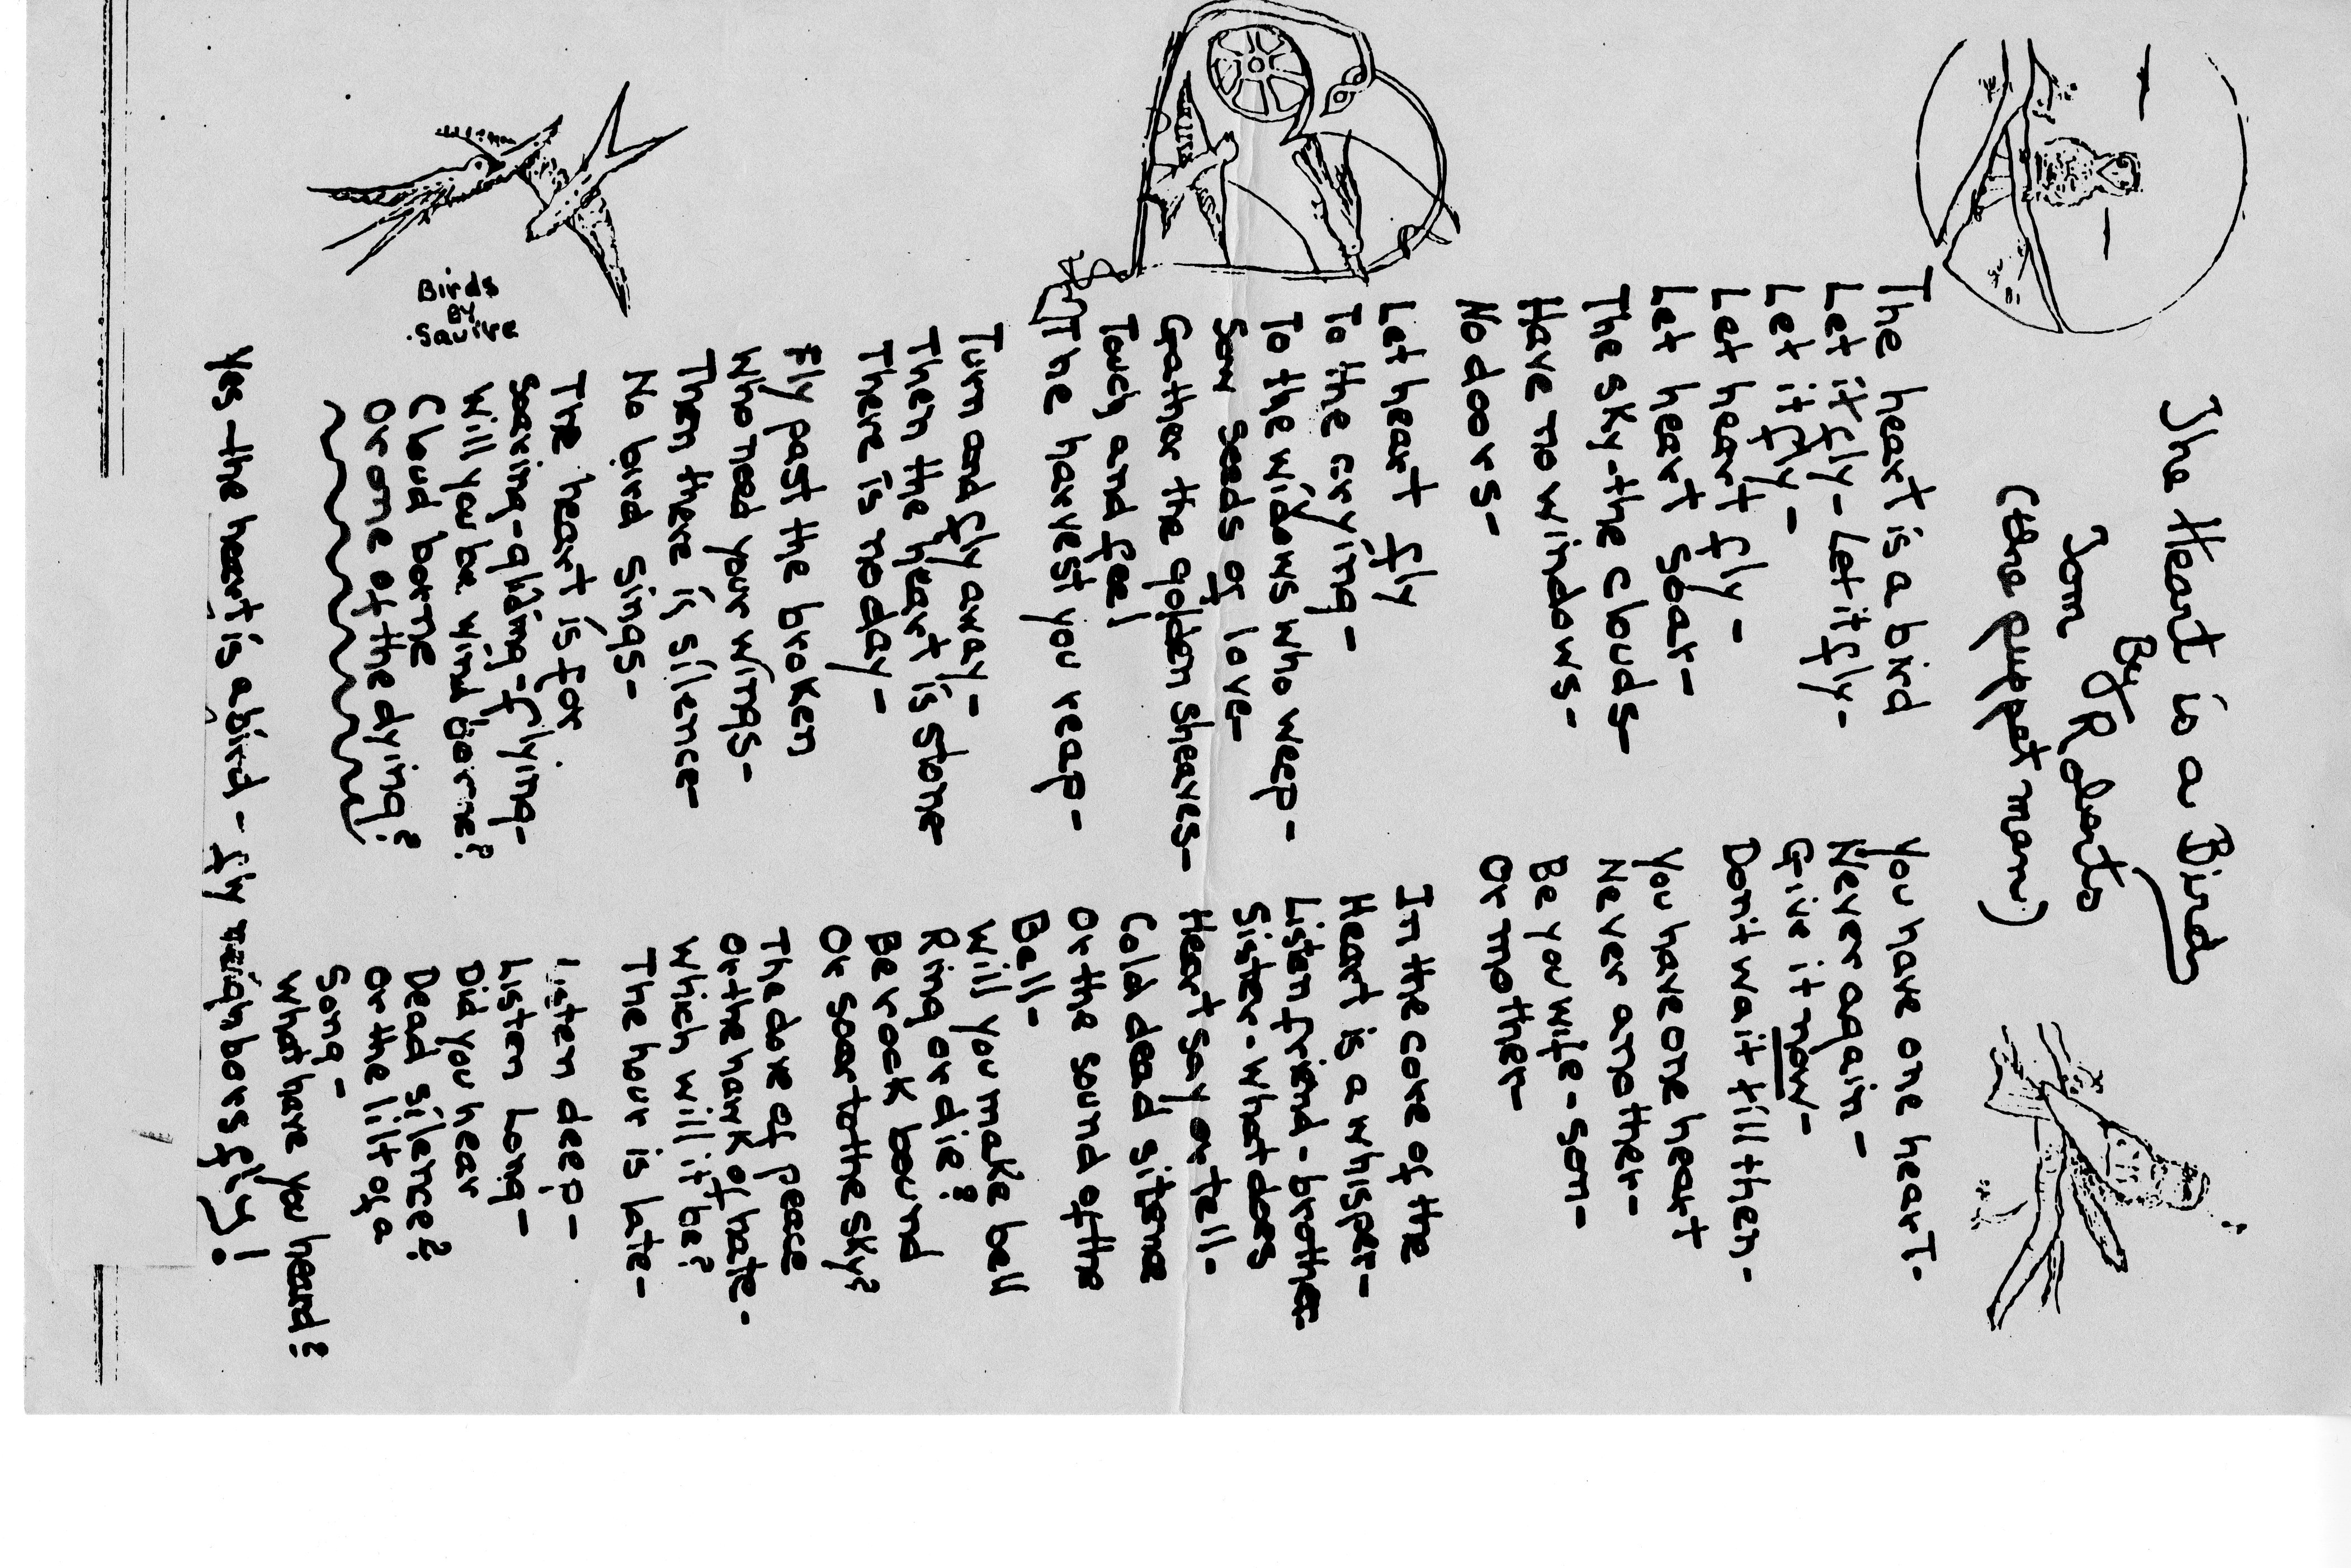 The Heart is a Bird
By
Tom Roberts
(the puppet man)
The heart is a bird
Let it fly - Let it fly -
Let it fly -
Let heart fly -
Let heart soar -
The sky - the clouds -
Have no windows -
No doors -
Let heart fly
To the crying -
To the widows who weep -
Sow seeds of love -
Gather the golden sheaves -
Touch and feel
The harvest you reap -
Turn and fly away -
Then the heart is stone
There is no day -
Fly past the broken
Who need your wings -
Then there is silence -
No bird sings -
The heart is for
Soaring - gliding - flying -
Will you be wind borne?
Cloud borne
Or one of the dying?
Birds
By
Squire
You have one heart.
Never again -
Give it now -
Don't wait till then -
You have one heart
Never another -
Be you wife - son -
Or mother -
In the core of the
Heart is a whisper -
Listen friend - brother -
Sister - what does
Heart say or tell -
Cold dead sitone
Or the sound of the
Bell -
Will you make bell
Ring or die?
Be rock bound
Or soar to the sky?
The dove of peace
Or the hawk of hate -
Which will it be?
The hour is late -
Listen deep -
Listen long -
Did you hear
Dead silence?
Or the lilt of a
Song -
What have you heard?
Yes - the heart is a bird - fly neighbors fly!